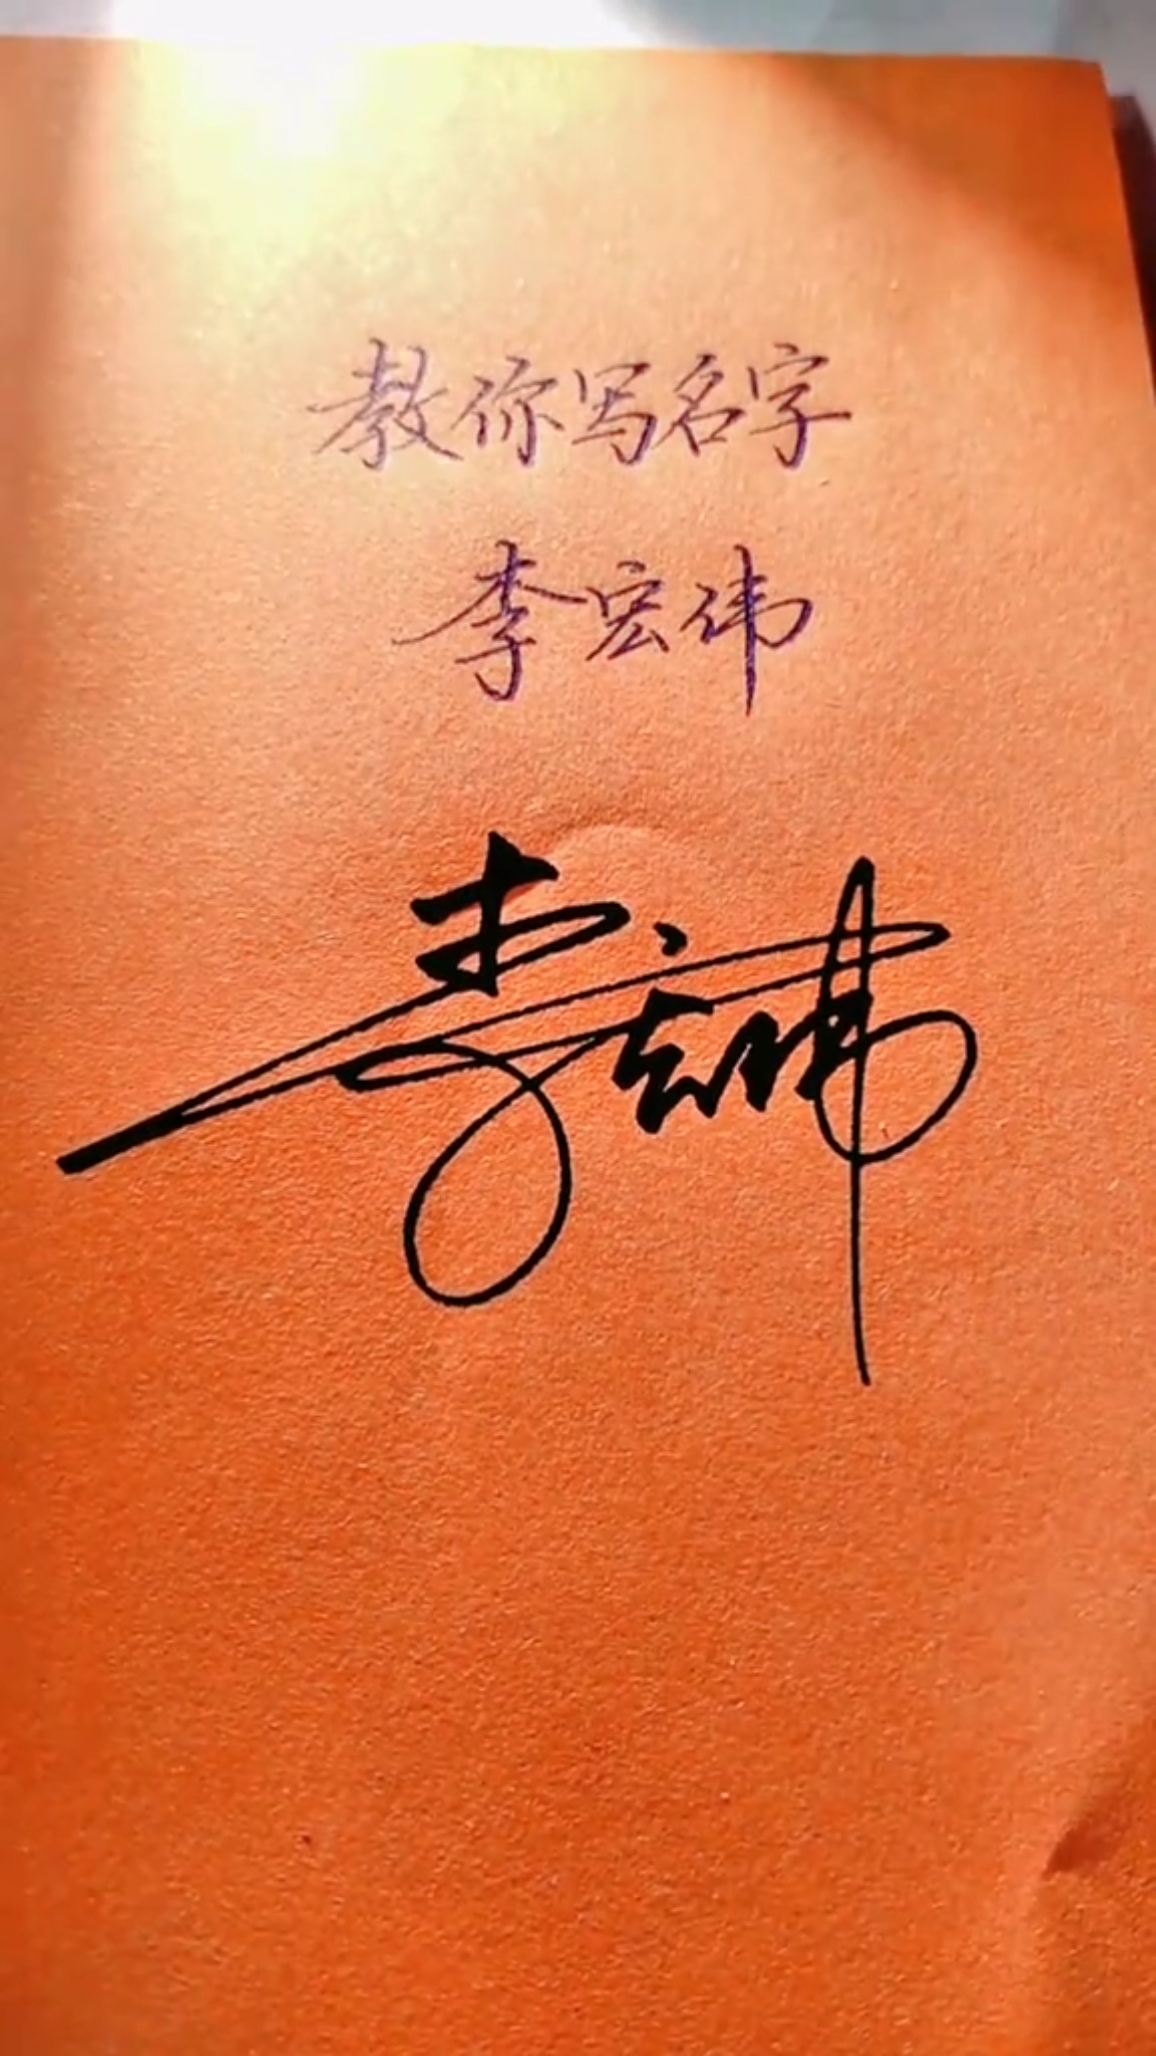 教你写名字
李宏伟
李宏伟